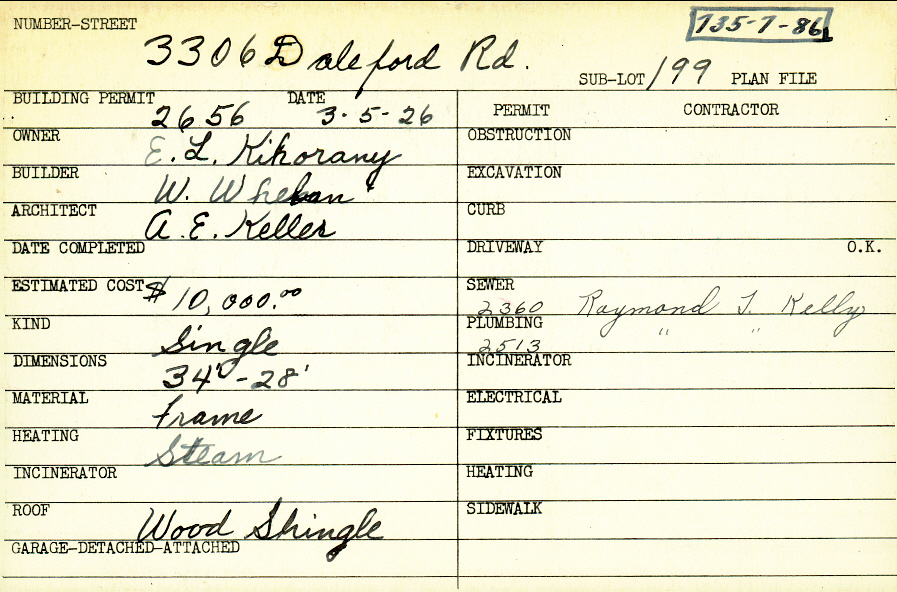 NUMBER-STREET
735-7-86
3306 Daleford Rd.
SUB-LOT 199 PLAN FILE
BUILDING PERMIT 2656 DATE 3-5-26
OWNER E. L. Kihorany
BUILDER W. Whelan
ARCHITECT A. E. Keller
DATE COMPLETED
ESTIMATED COST $10,000.00
KIND Single
DIMENSIONS 34'-28'
MATERIAL Frame
HEATING Steam
INCINERATOR
ROOF Wood Shingle
GARAGE-DETACHED-ATTACHED
PERMIT CONTRACTOR
OBSTRUCTION
EXCAVATION
CURB
DRIVEWAY O.K.
SEWER
2360 Raymond J. Kelly
PLUMBING " "
2513
INCINERATOR
ELECTRICAL
FIXTURES
HEATING
SIDEWALK